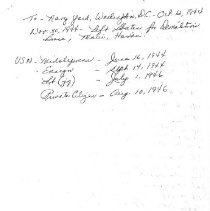 To - Navy Yard, Washington, D.C. - Oct 21, 1944
Nov 30, 1944 - Left States for Demolition
USN - Midshipman - June 16, 1944
- Ensign - Sept 14, 1944
Lt (jg) - July 1, 1946
Private Citizen - Aug. 10, 1946